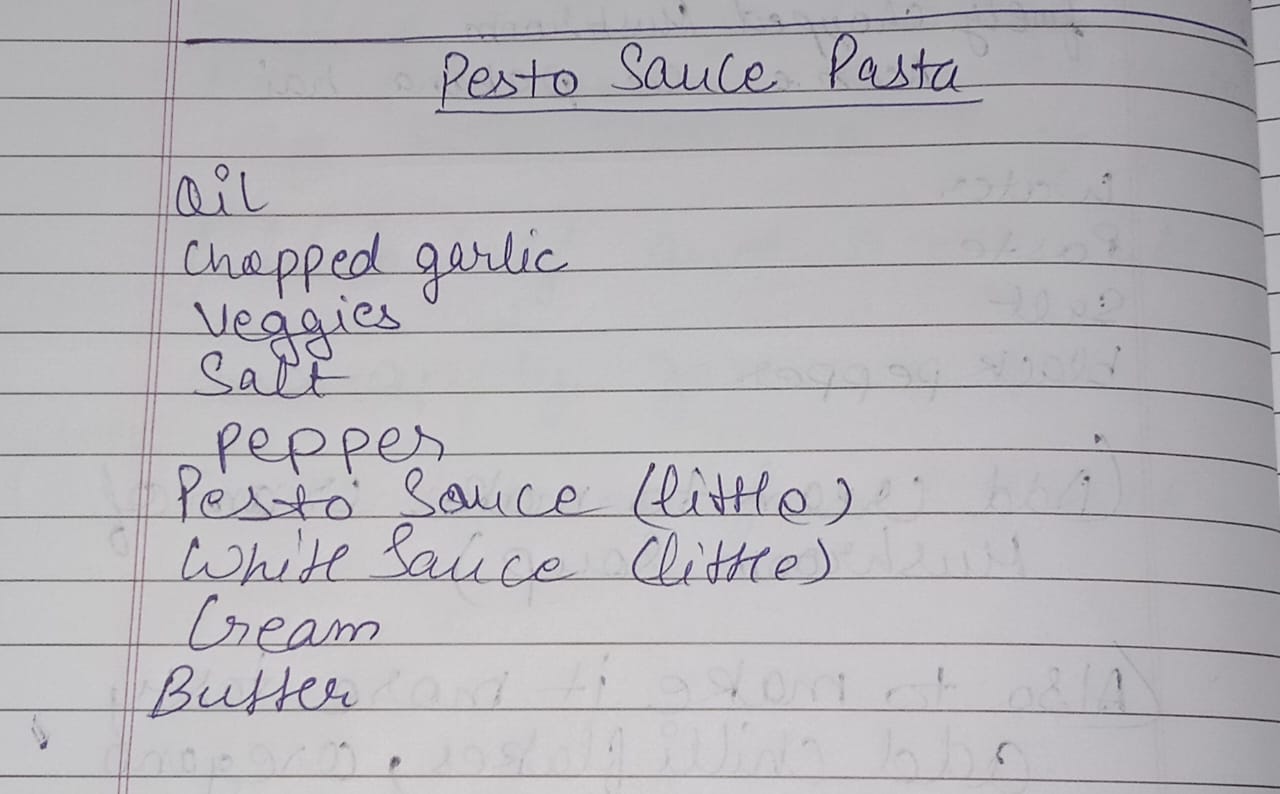 Pesto Sauce Pasta
Oil
Chopped garlic
Veggies
Salt
Pepper
Pesto Sauce (little)
White Sauce (little)
Cream
Butter